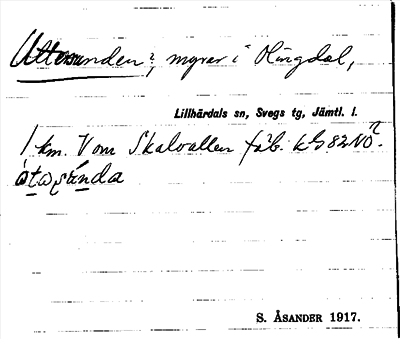 Uttersunden?, myrar i Olingdal,
Lillhärdals sn, Svegs tg, Jämtl. l.
1 km. V om Skalvallen fäb. kB 82 NO
S. ÅSANDER 1917.